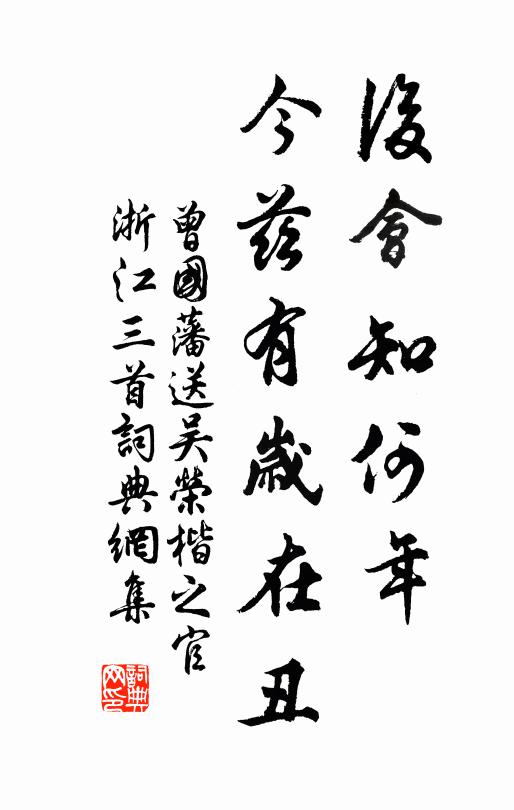 後會知何年
今茲有歲在丑
曾國藩送吳榮楷之官
浙江三首詞典網集
詞典
网印